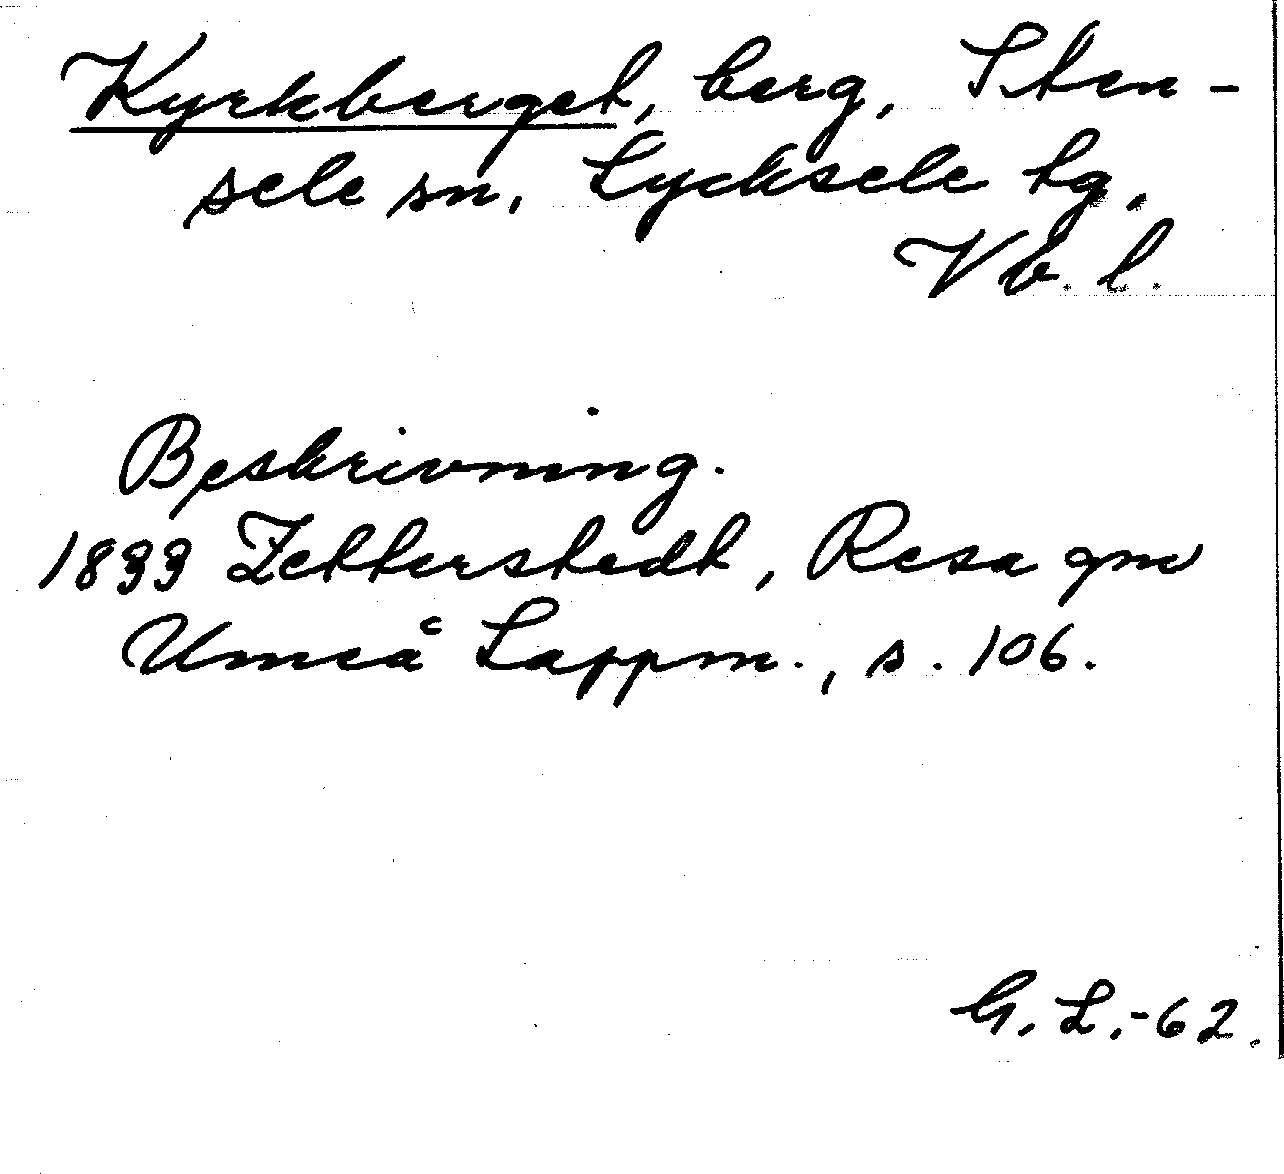 Kyrkberget, berg, Sten-
sele sn. Lycksele tg.
Vb. l.
Beskrivning.
1833 Zetterstedt, Resa gm
Umeå Lappm., s. 106.
G. L.-62.